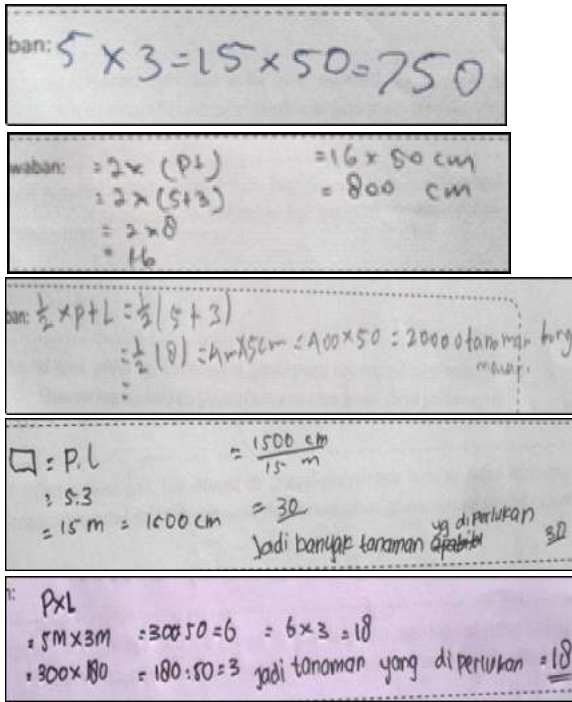 ban: 5 x 3 = 15 x 50 = 750
waban: = 2 x (P+)
= 2 x (5+3)
= 2 x 8
= 16
= 16 x 50 cm
= 800 cm
ban: 1/2 x P + L = 1/2 (5 + 3)
= 1/2 (8) = 4m x 5cm = 400 x 50 = 20000 tanaman bung
=
□ = P.L
= 5.3
= 15 m = 1500 cm
= 1500 cm / 15 m
= 30
Jadi banyak tanaman yg diperlukan 30
n: PXL
= 5M X 3M
= 300 x 180
= 300:50 = 6 = 6 x 3 = 18
= 180:50 = 3 Jadi tanaman yang diperlukan = 18